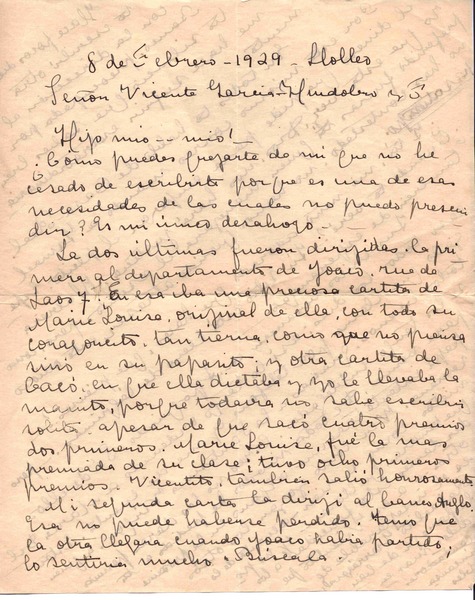 8 de Febrero - 1929 - Llolleo
Señor Vicente García-Huidobro y F
Hijo mio -- mio!
¿Cómo puedes quejarte de mi que no he
cesado de escribirte porque es una de esas
necesidades de las cuales no puedo prescin
dir? Es mi único desahogo. -
La dos últimas fueron dirijidas, la pri
mera al departamento de Joaco. rue de
Laos 7. En esa iba una preciosa cartita de
Marie Louise, orijinal de ella, con todo su
corazoncito, tan tierna, como que no piensa
sinó en su papanto; y otra cartita de
Cacó, en que ella dictaba y yo le llevaba la
manito, porque todavia no sabe escribir
solita apesar de que sacó cuatro premios
dos primeros. Marie Louise, fué la mas
premiada de su clase; tuvo ocho primeros
premios. Vicentito, tambien salió honrosamente
Mi segunda carta la dirijí al banco Anglo.
Esa no puede haberse perdido. Temo que
la otra llegara cuando Joaco habia partido;
lo sentiria mucho. Búscala.